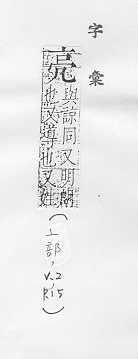 字彙
亮
與諒同又明朗
也又導也又姓
(亠部,
V.2
P.15)